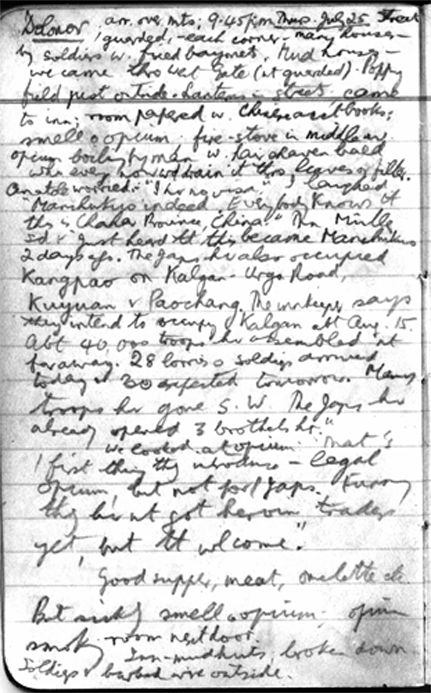 Dolonor arr. over mts; 9.45 p.m. Thurs. July 25 Street
guarded, - each corner - many houses -
by soldiers w. fixed bayonets, Mud houses -
we came thro West Gate (at guarded). Poppy
field just outside. Lanterns in street. Came
to inn; room papered w. Chinese acct books;
smell o opium. fire-stove in middle
opium boiling by man w. hair shaven bald
who every now drain it thro leaves o filter.
Anatol worried: "I hv no visa" I laughed
"Manchukuo indeed. Everybody knows tt
this is Chahar Province, China." Then Müller
sd v just heard tt this became Manchukuo
2 days ago. The Japs hv also occupied
Kangpao on Kalgan-Urga Road,
Kuyuan & Paochang. The innkeeper says
they intend to occupy Kalgan abt Aug. 15.
Abt 40,000 troops hv assembled nt
far away. 28 lorries o soldiers arrived
today & 30 expected tomorrow. Many
troops hv gone S.W. The Japs hv
already opened 3 brothels hr."
We looked at opium. "That's
first thing they introduce - legal
opium, but not for Japs. Funny
they hv nt got heroin traders
yet, but tt wl come."
Good supper, meat, omelette etc.
But sickly smell o opium; opium
smoking room next door.
Inn - mud huts, broken down.
Soldiers & barbed wire outside.